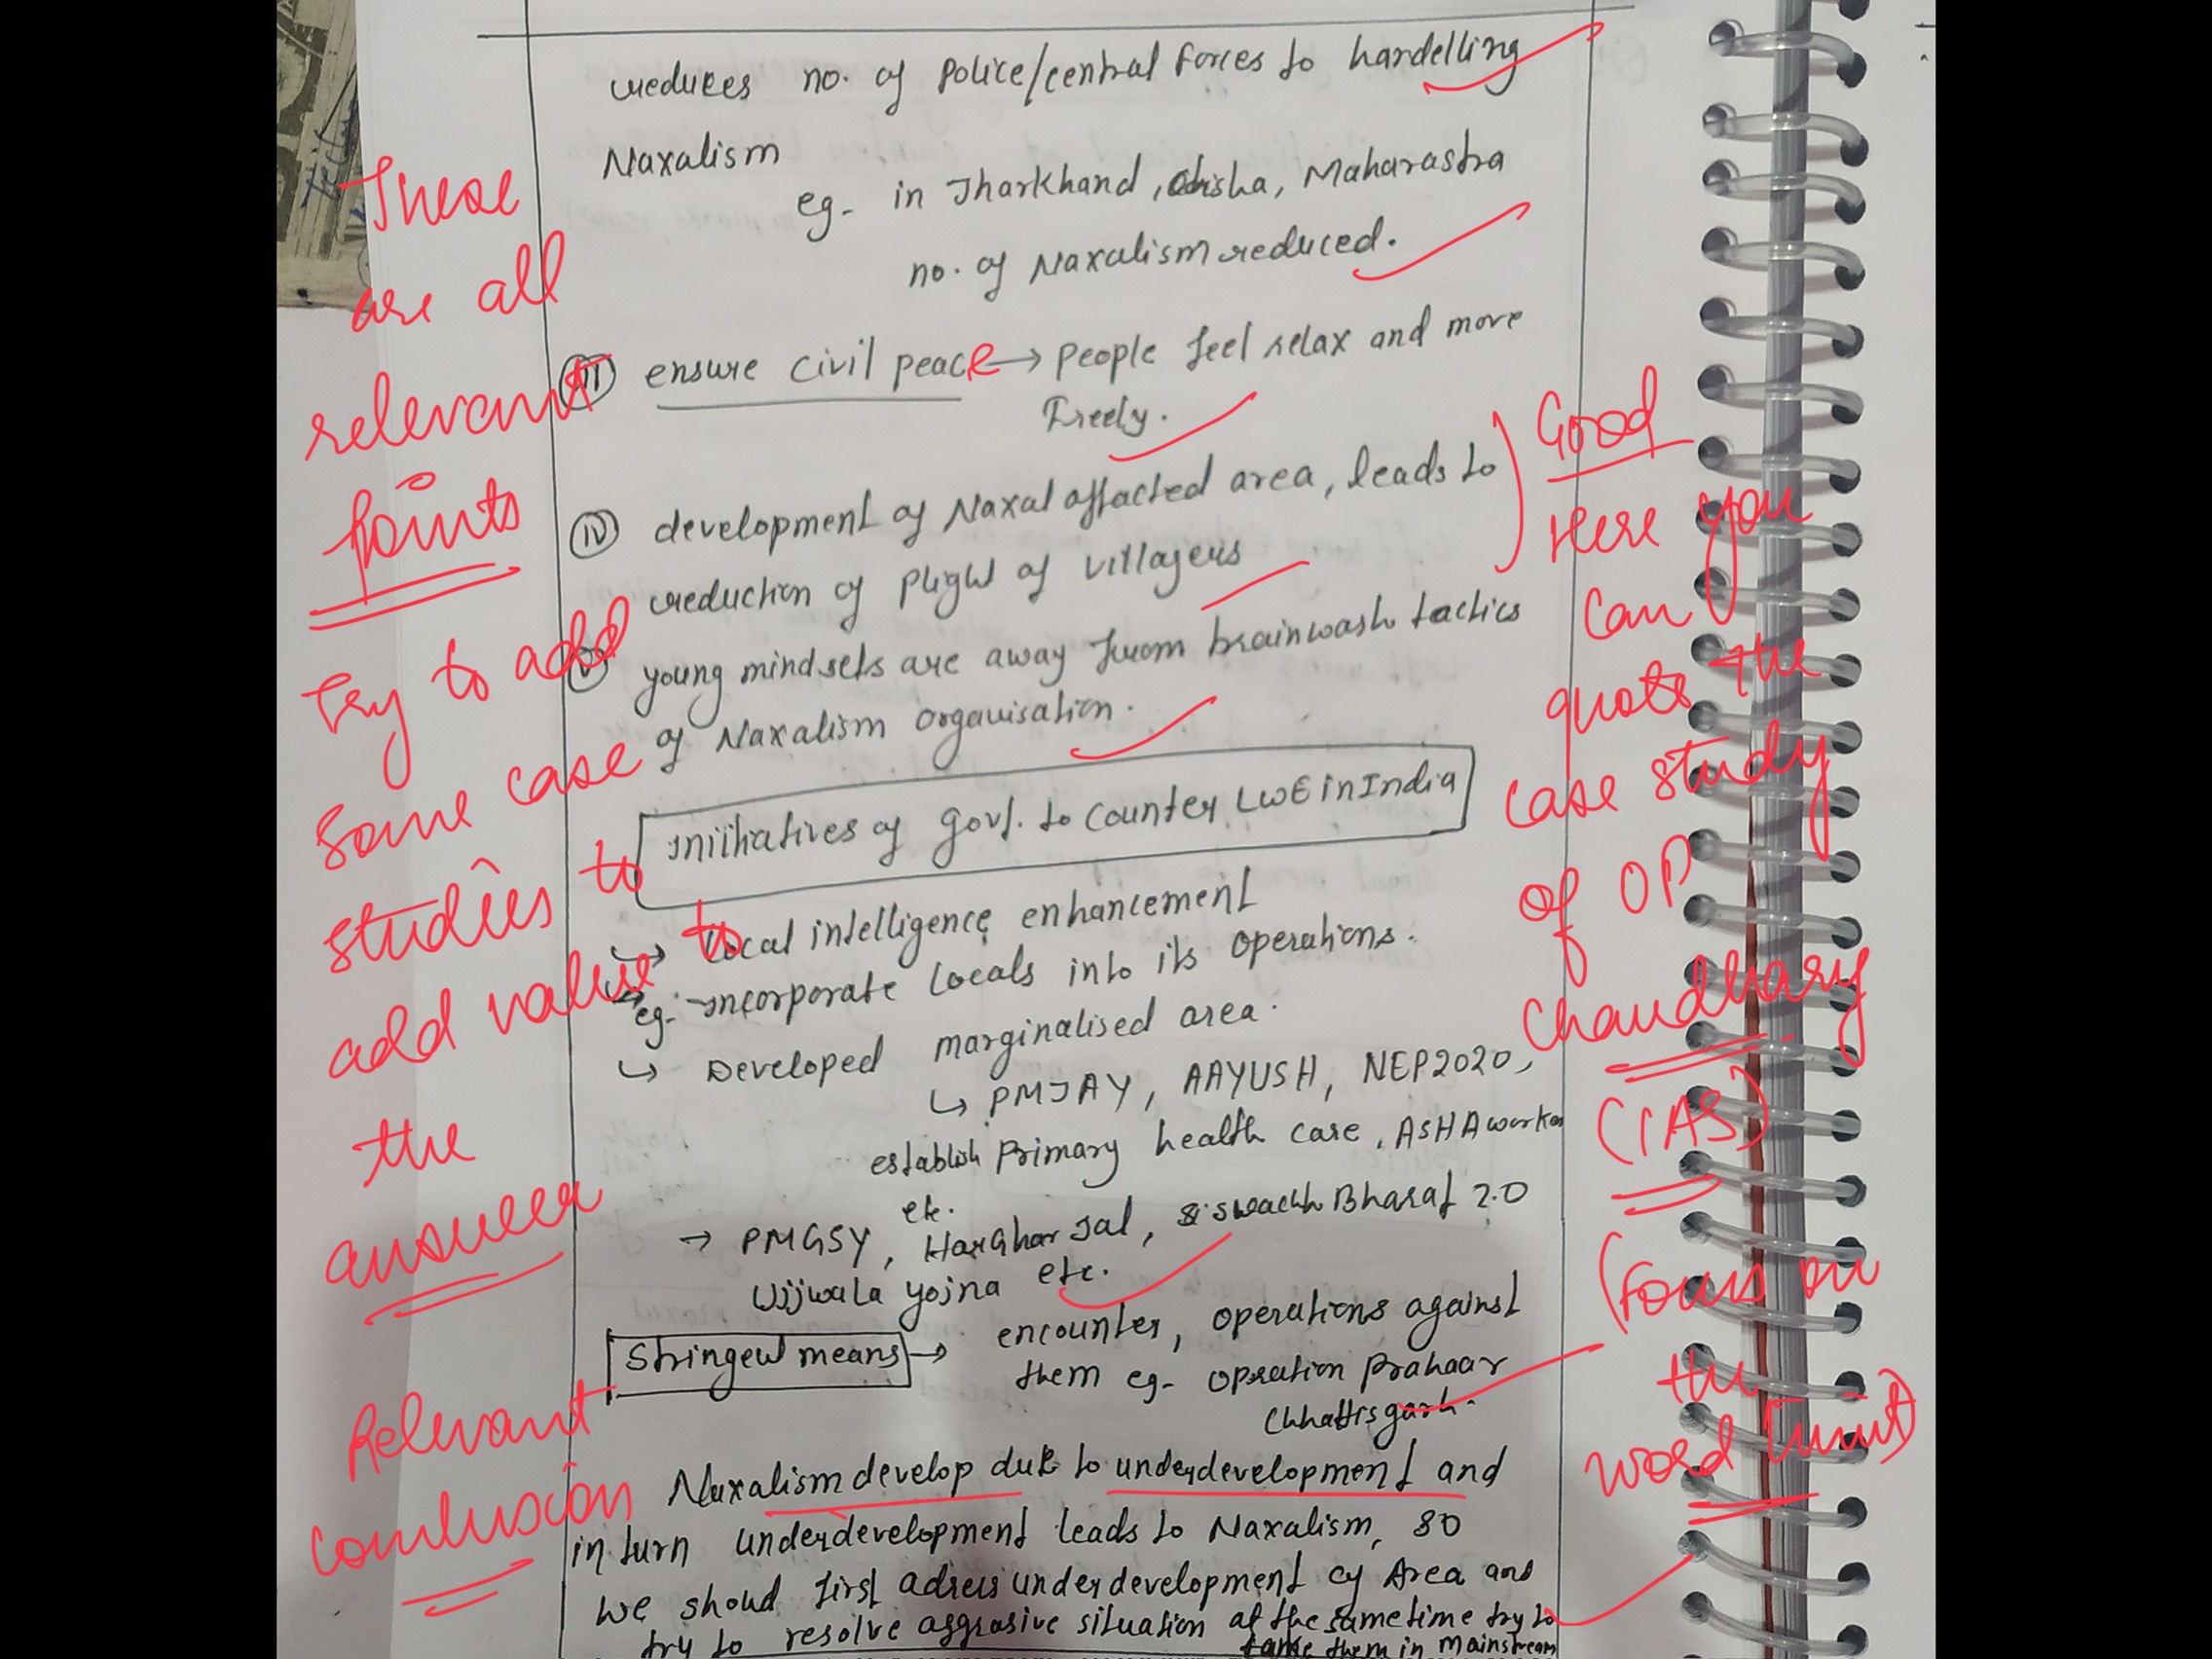 reduces no. of police/central forces to handelling
Naxalism
eg- in Jharkhand, Odisha, Maharastra
no. of Naxalism reduced.
(iii) ensure civil peace → people feel relax and more
Freely.
(iv) development of Naxal affacted area, leads to
reduction of plight of villagers
(v) young mindsets are away from brainwash tactics
of Naxalism organisation.
Iniitiatives of govt. to counter LWE in India
↳ Local intelligence enhancement
eg- incorporate locals into its operations.
↳ Developed marginalised area.
↳ PMJAY, AAYUSH, NEP2020,
establish Primary health care, ASHA worker
etc.
→ PMGSY, HarGhar Jal, Swachh Bharat 2.0
Ujjwala yojna etc.
Stringent means → encounter, operations against
them eg- operation Prahaar
Chhattisgarh.
Naxalism develop due to underdevelopment and
in turn underdevelopment leads to Naxalism, so
we shoud first adress underdevelopment of Area and
try to resolve aggrasive situation at the same time try to
take them in mainstream
These
are all
relevant
points
Try to add
some case
studies to
add value to
the
answer
Relevant
conclusion
Good
Here you
can
quote the
case study
of OP
Chaudhary
(IAS)
(Focus on
the
word limit)